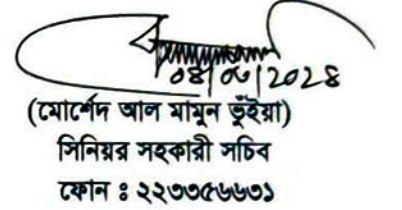 ০৪/০৩/২০২৪
(মোর্শেদ আল মামুন ভূঁইয়া)
সিনিয়র সহকারী সচিব
ফোন ঃ ২২৩৩৫৬৬৩১